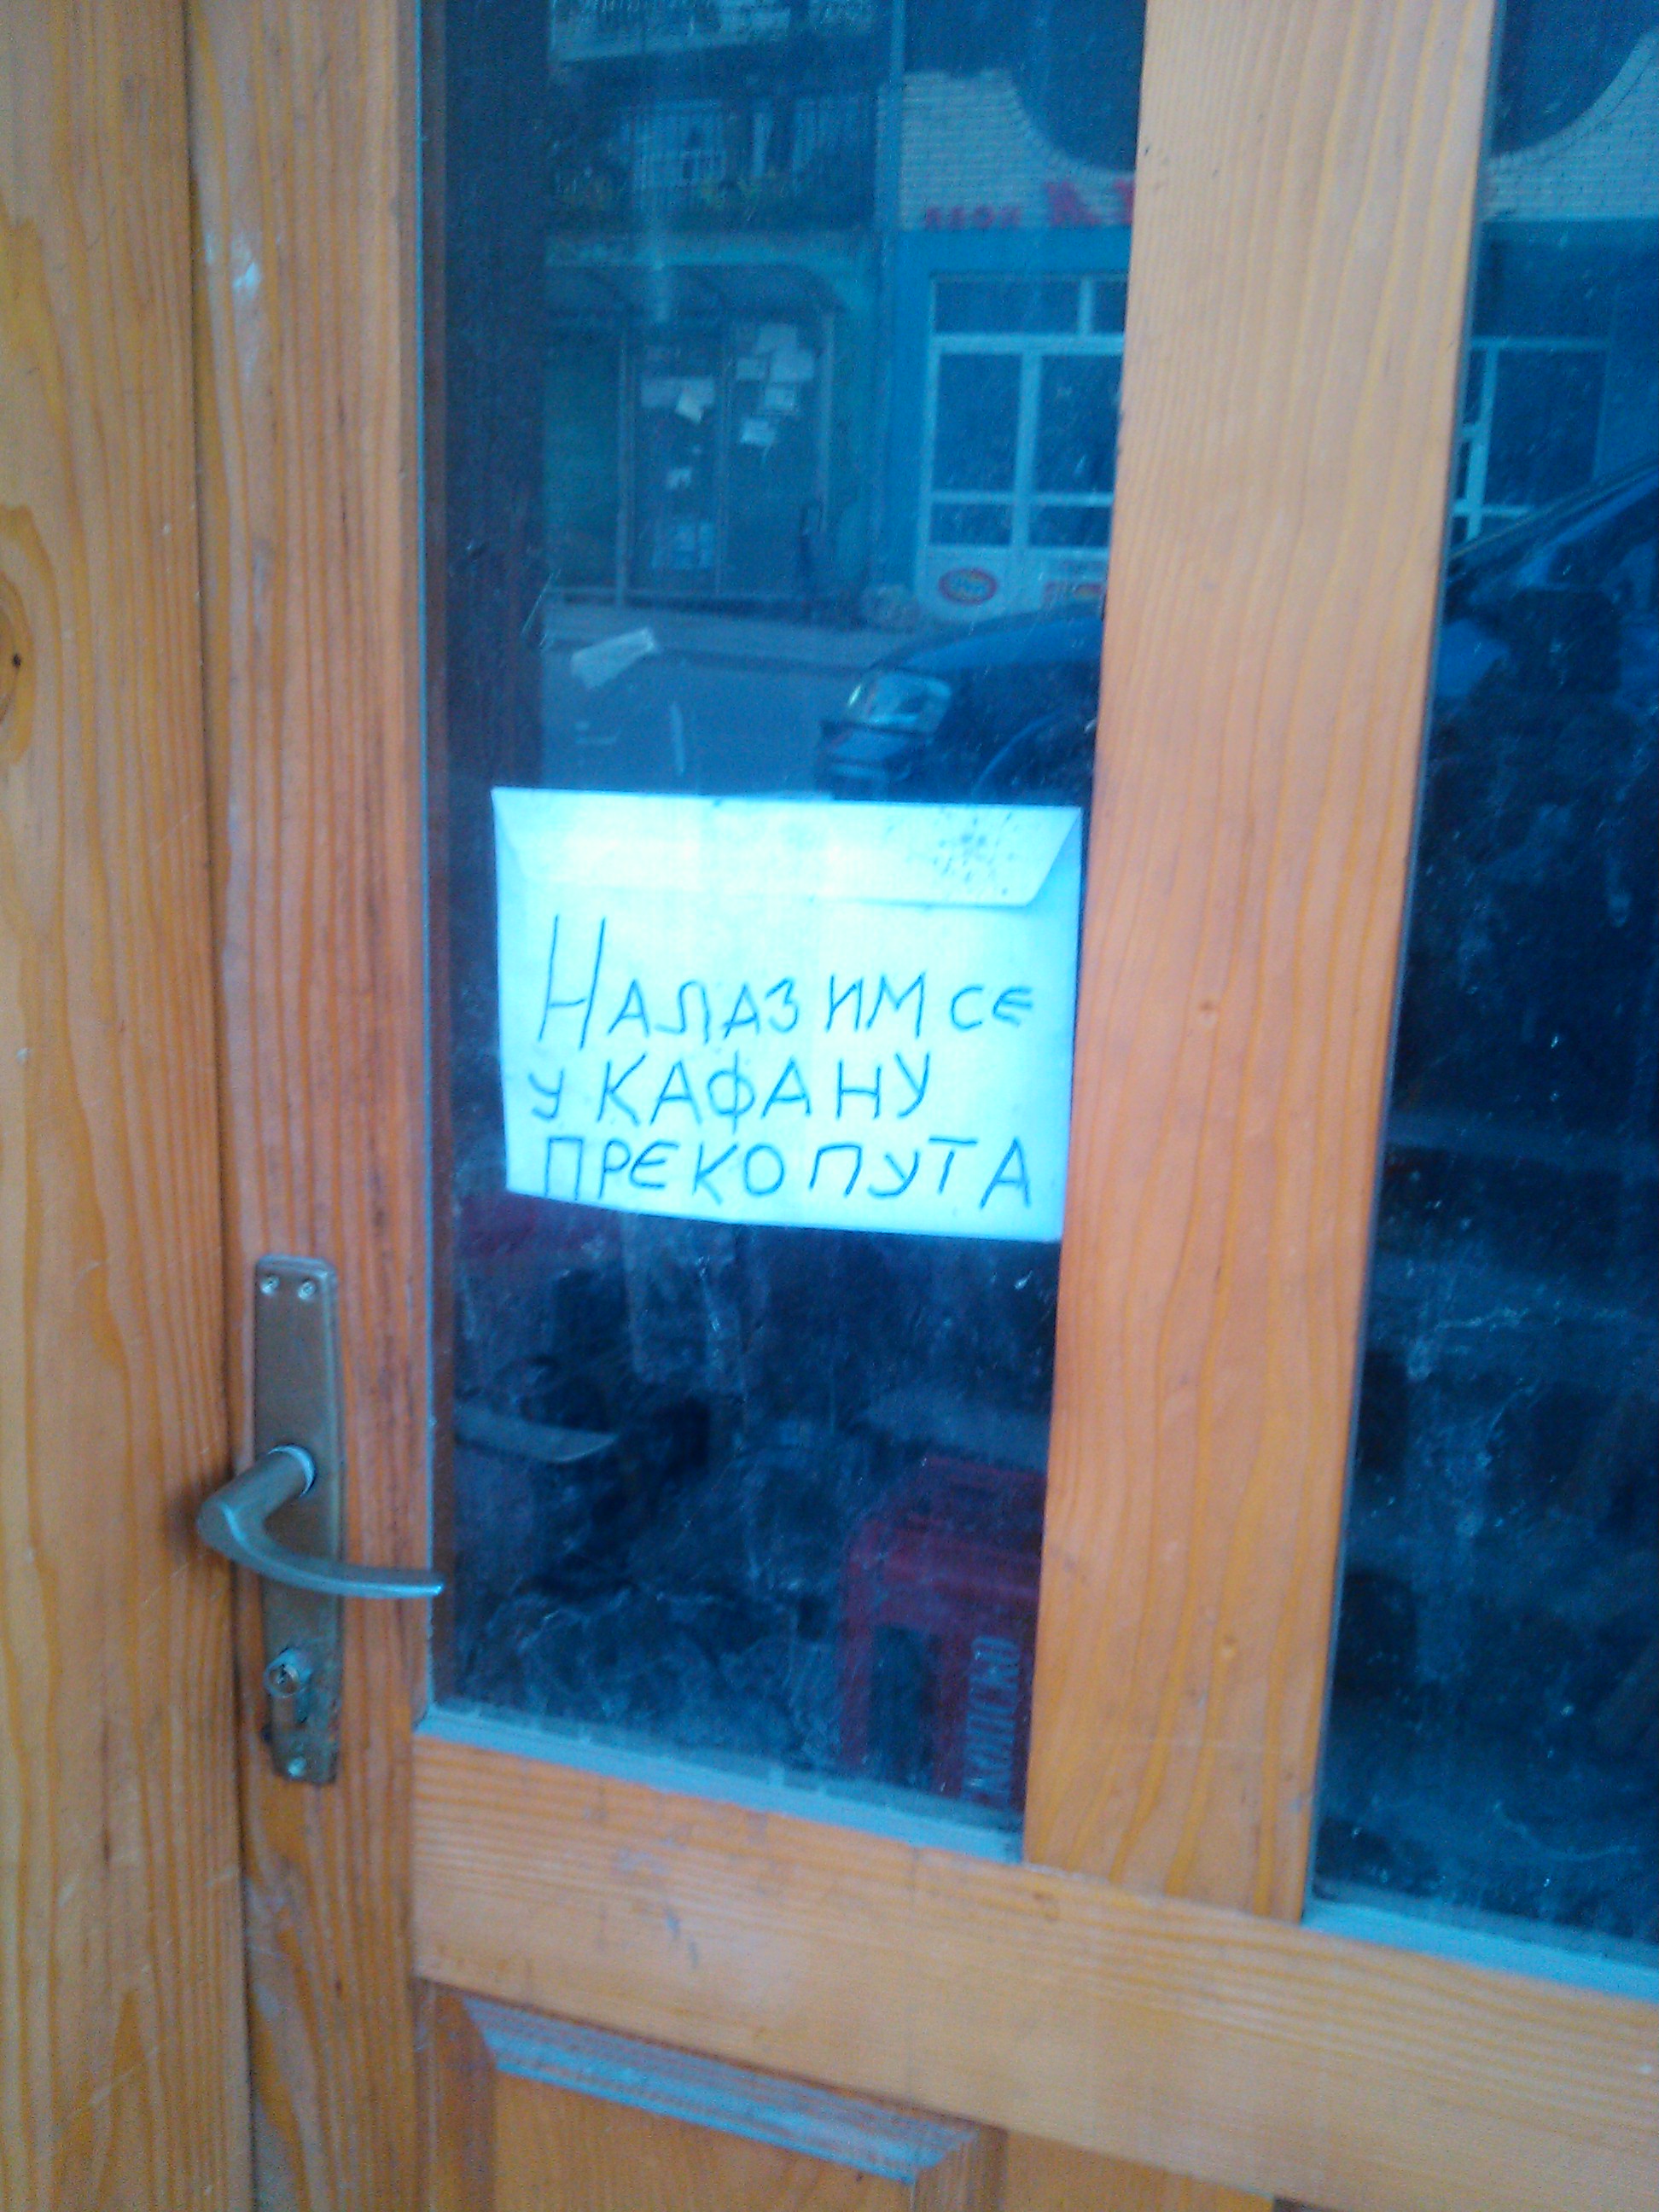 НАЛАЗИМ СЕ
У КАФАНУ
ПРЕКО ПУТА